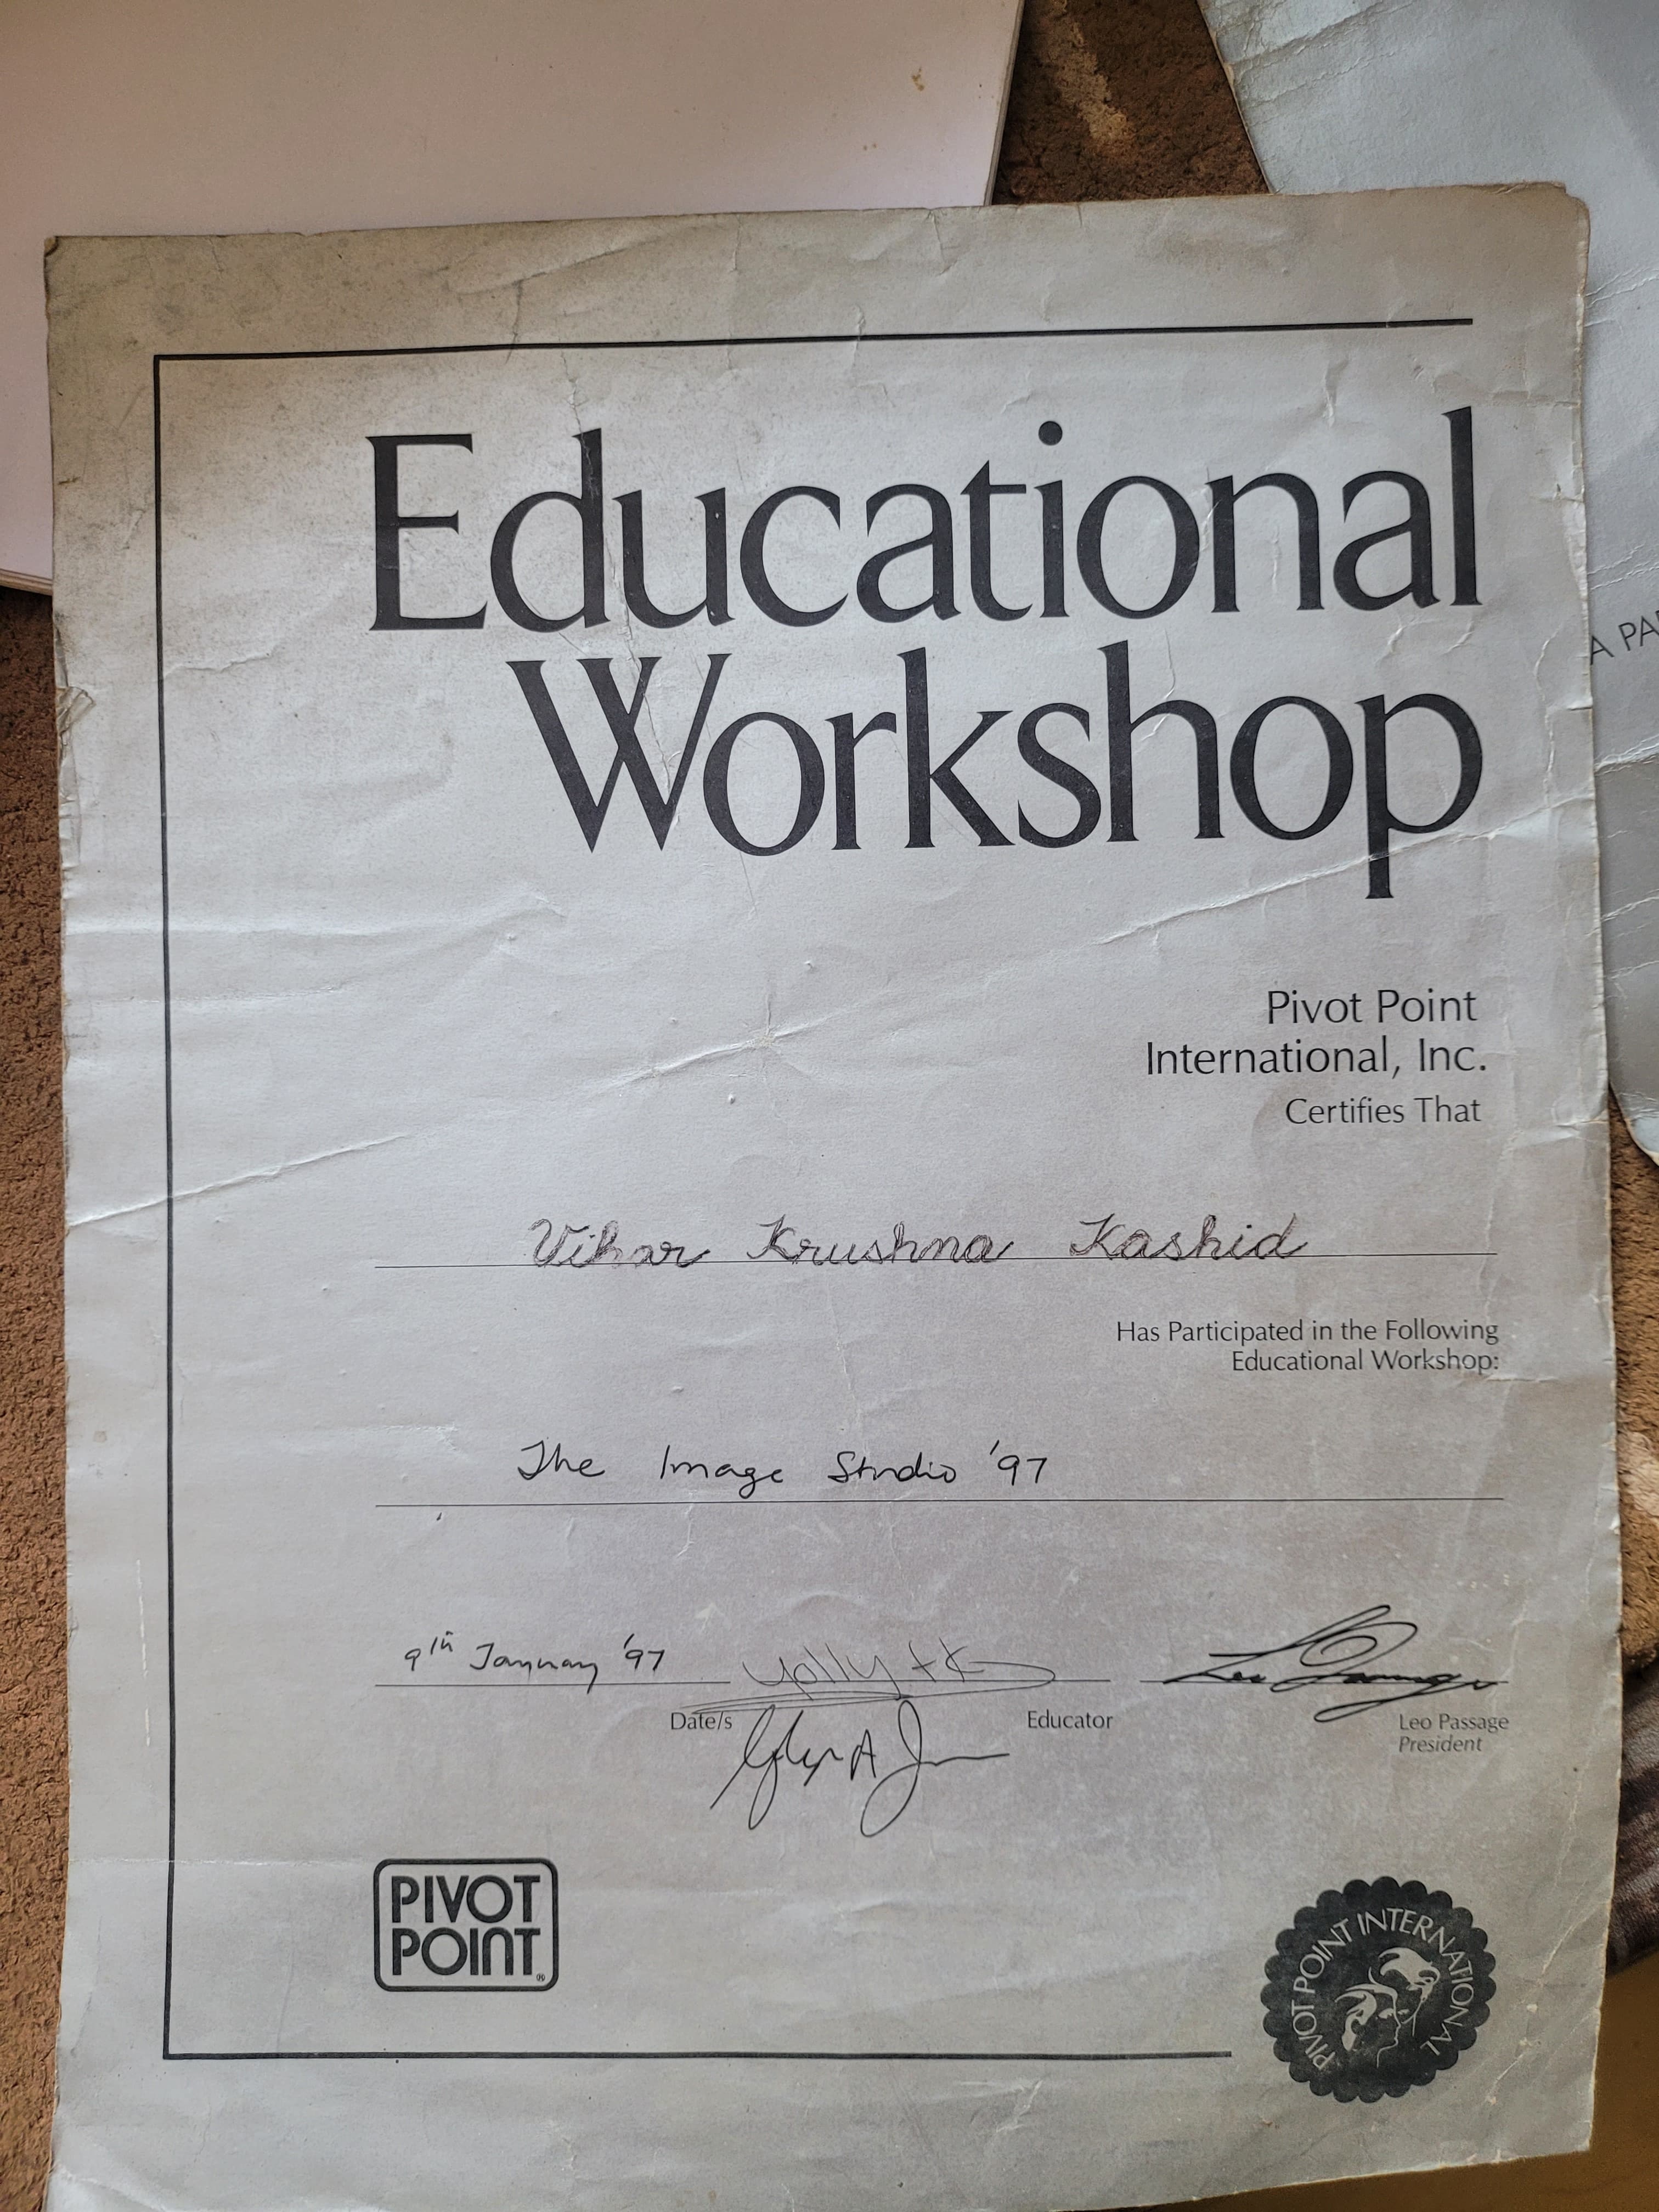 Educational
Workshop
Pivot Point
International, Inc.
Certifies That
Vihar Krushna Kashid
Has Participated in the Following
Educational Workshop:
The Image Studio '97
9th January '97
Date/s
Educator
Leo Passage
President
PIVOT
POINT®
PIVOT POINT INTERNATIONAL
A PA